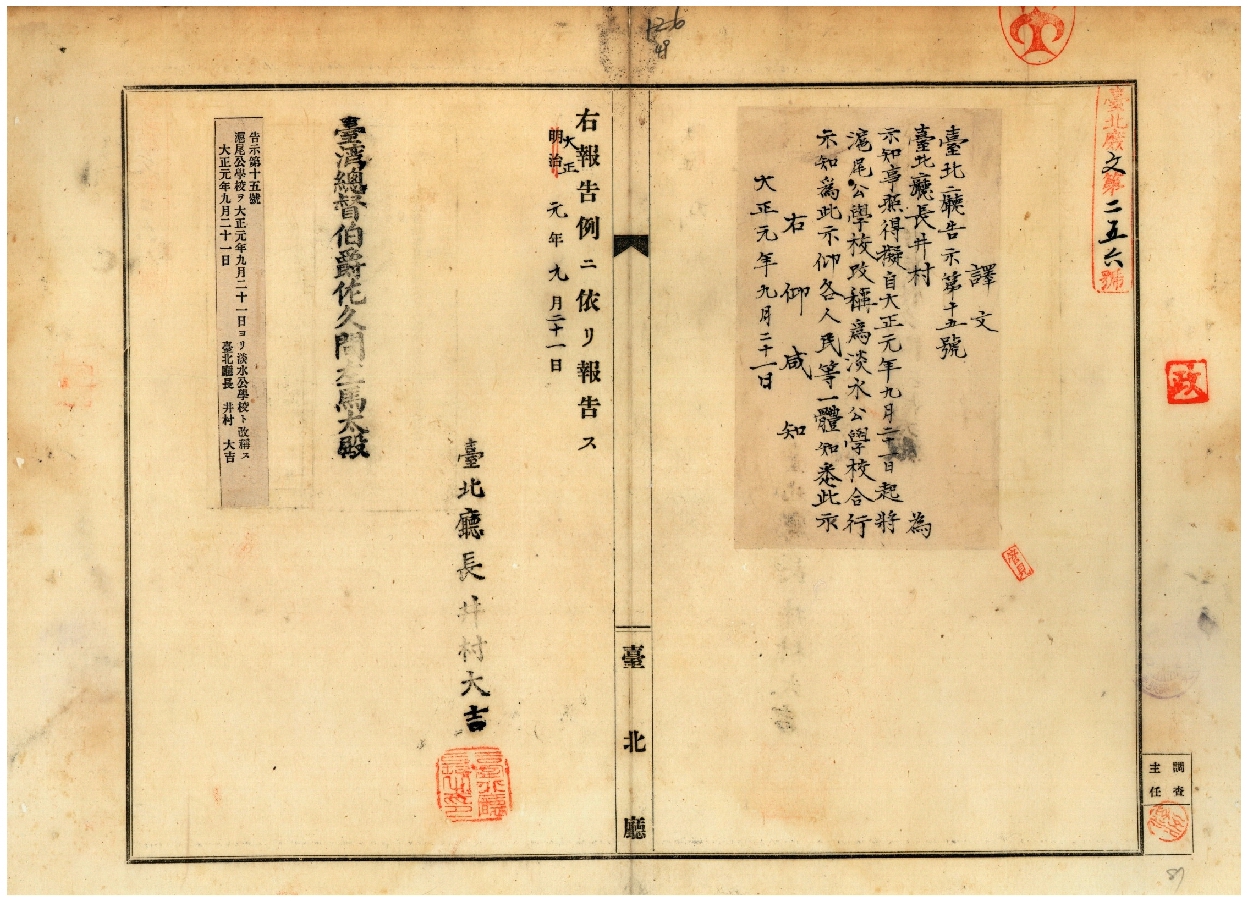 臺北廳文第二五六號
譯文
臺北廳告示第十五號
臺北廳長井村　為
示知事照得擬自大正元年九月二十一日起將
滬尾公學校改稱為淡水公學校合行
示知為此示仰各人民等一體知悉此示
右仰咸知
大正元年九月二十一日
政
調查
主任
臺北廳
右報告例ニ依リ報告ス
大正
明治
元年九月二十一日
臺北廳長井村大吉
臺灣總督伯爵佐久間左馬太殿
告示第十五號
滬尾公學校ヲ大正元年九月二十一日ヨリ淡水公學校ト改稱ス
大正元年九月二十一日
臺北廳長　井村　大吉